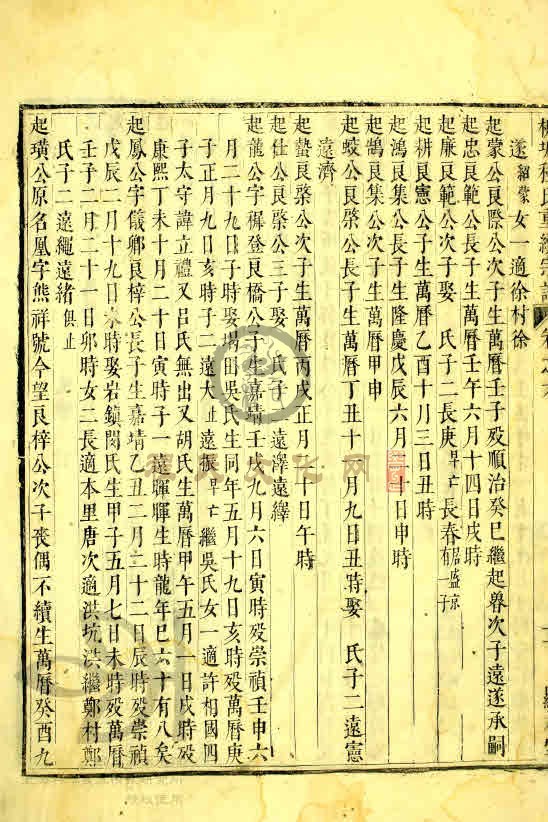 遂 紹蒙 女一適徐村徐
起蒙公艮際公次子生萬曆壬子歿順治癸巳繼起晷次子遠遂承嗣
起忠艮範公長子生萬曆壬午六月十四日戌時
起廉艮範公次子娶 氏子二長庚早亡長春有一子
起耕艮憲公子生萬曆乙酉十月三日丑時
起鴻艮集公長子生隆慶戊辰六月二十日申時
起鵠艮集公次子生萬曆甲申
起蛟公艮棨公長子生萬曆丁丑十 月九日丑時娶 氏子二遠憲
遠濟
起螯艮棨公次子生萬曆丙戌正月二十日午時
起仕公艮棨公三子娶 氏子 遠澤遠繹
起龍公字墀登艮橋公子生嘉靖壬戌九月六日寅時歿崇禎壬申六
月二十九日子時娶場田吳氏生同年五月十九日亥時歿萬曆庚
子正月九日亥時子二遠大止遠振早亡繼吳氏女一適許相國四
子太守諱立禮又呂氏無出又胡氏生萬曆甲午五月一日戌時歿
康熙丁未十月二十日寅時子一遠暉暉生時龍年巳六十有八矣
起鳳公字儀卿艮梓公長子生嘉靖乙丑二月二十二日辰時歿崇禎
戊辰二月十九日未時娶岩鎮閔氏生甲子五月七日未時歿萬曆
壬子二月二十一日卯時女二長適本里唐次適洪坑洪繼鄭村鄭
氏子二遠繩遠緒俱止
起璜公原名凰字熊祥號今望艮梓公次子喪偶不續生萬曆癸酉九